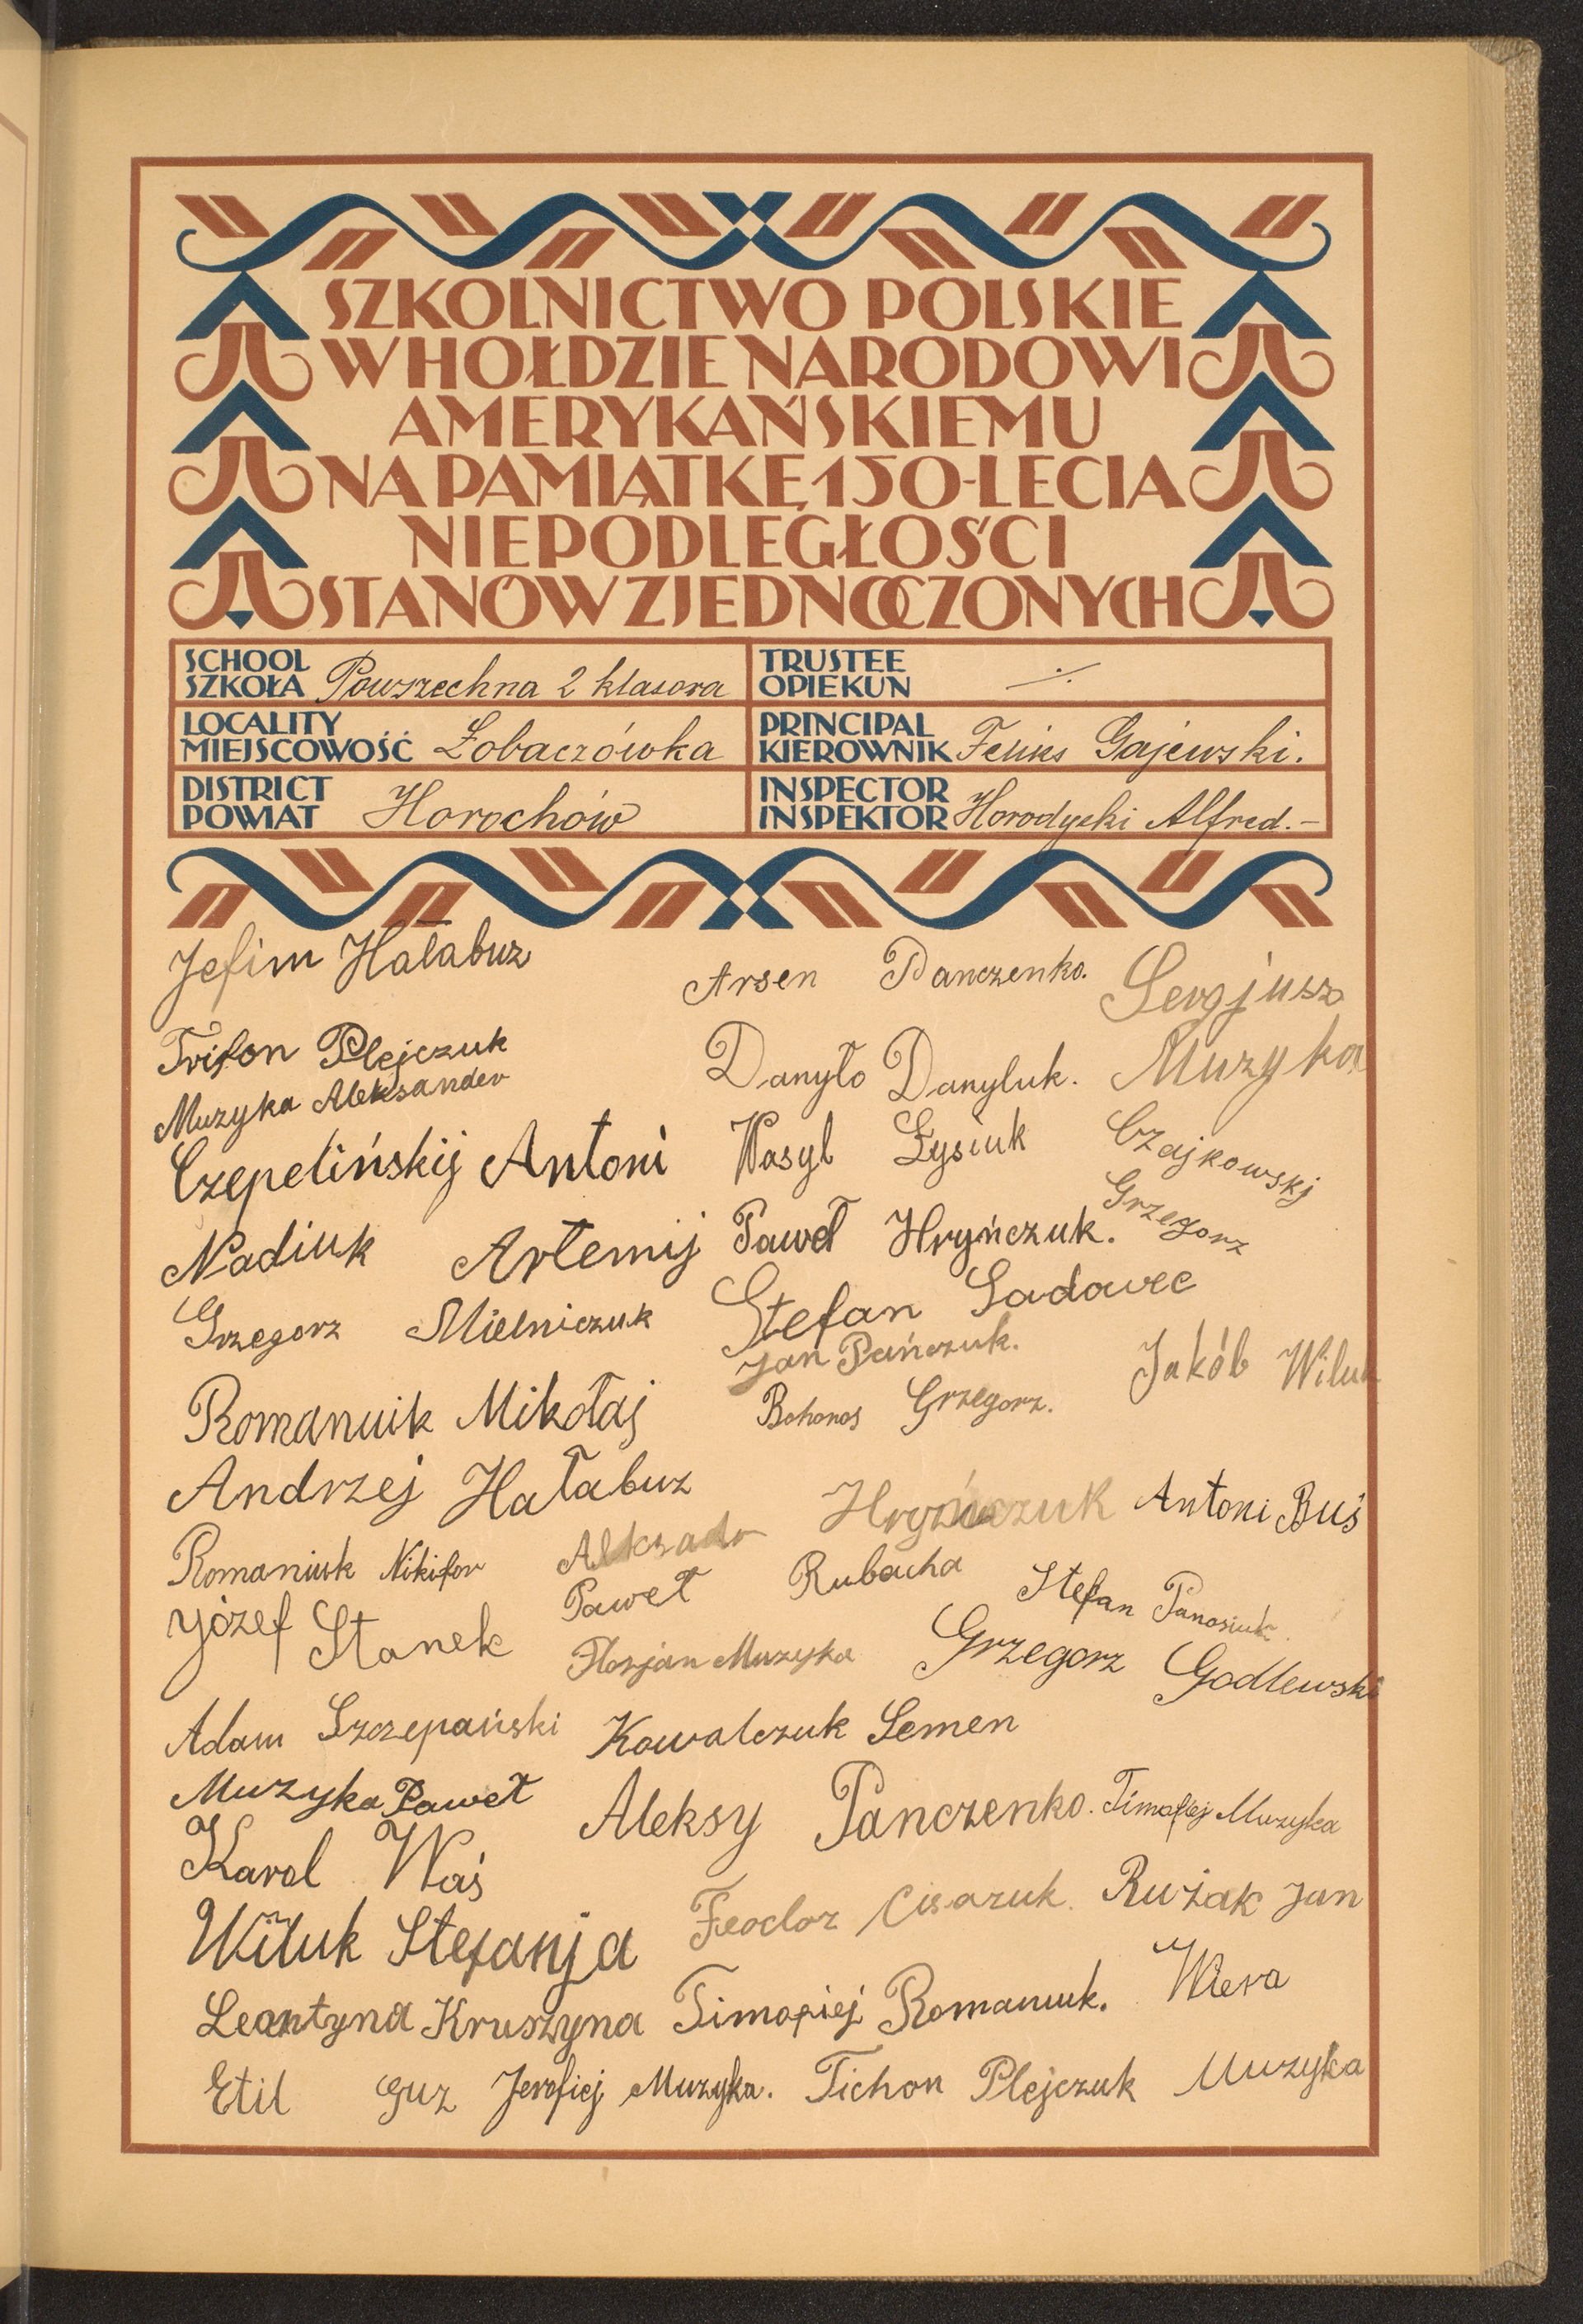 SZKOLNICTWO POLSKIE
W HOŁDZIE NARODOWI
AMERYKAŃSKIEMU
NA PAMIĄTKĘ 150-LECIA
NIEPODLEGŁOŚCI
STANÓW ZJEDNOCZONYCH
SCHOOL
SZKOŁA Powszechna 2 klasowa
TRUSTEE
OPIEKUN
LOCALITY
MIEJSCOWOŚĆ Łobaczówka
PRINCIPAL
KIEROWNIK Feliks Gajewski.
DISTRICT
POWIAT Horochów
INSPECTOR
INSPEKTOR Horodyski Alfred.-
Jefim Hałabuz
Trifon Plejczuk
Muzyka Aleksander
Czepelińskij Antoni
Nadiuk Artemij
Grzegorz Mielniczuk
Romanuik Mikołaj
Andrzej Hałabuz
Romaniuk Nikifor
Józef Stanek
Adam Szczepański
Muzyka Paweł
Karol Waś
Wiluk Stefanja
Leontyna Kruszyna
Etil Guz
Arsen Panczenko.
Danyło Danyluk.
Wasyl Łysiuk
Paweł Hryńczuk.
Stefan Sadowec
Jan Pańczuk.
Bohonos Grzegorz.
Hryńczuk
Paweł Rubacha
Florjan Muzyka
Kowalczuk Semen
Aleksy Panczenko.
Feodor
Timofiej Romaniuk.
Jerofiej Muzyka.
Tichon Plejczuk
Sergjusz
Muzyka
Czajkowskj
Grzegorz
Jakób Wiluk
Antoni Buś
Stefan Panasiuk
Grzegorz Godlewski
Timofiej Muzyka
Rużak Jan
Wiera
Muzyka